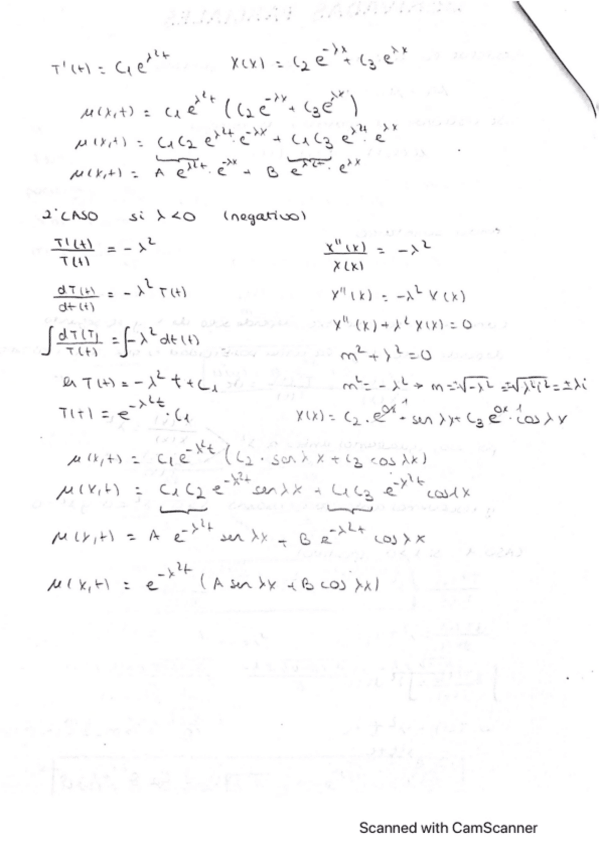 T'(t) = C₁e^{λ²t}    X(x) = C₂e^{-λx} + C₃e^{λx}
μ(x,t) = C₁e^{λ²t} (C₂e^{-λx} + C₃e^{λx})
μ(x,t) = C₁C₂ e^{λ²t} · e^{-λx} + C₁C₃ e^{λ²t} · e^{λx}
μ(x,t) = A e^{λ²t} · e^{-λx} + B e^{λ²t} · e^{λx}
2º CASO si λ<0 (negativo)
T'(t)/T(t) = -λ²    X''(x)/X(x) = -λ²
dT(t)/dt(t) = -λ² T(t)    X''(x) = -λ² X(x)
∫ dT(T)/T(t) = ∫ -λ² dt(t)    X''(x) + λ² X(x) = 0
m² + λ² = 0
ln T(t) = -λ² t + C₁    m² = -λ² → m = √-λ² = √λ²i² = ±λi
T(t) = e^{-λ²t} · C₁    X(x) = C₂ · e^{0x} · sen λx + C₃ e^{0x} · cos λx
μ(x,t) = C₁e^{-λ²t} (C₂ · sen λx + C₃ cos λx)
μ(x,t) = C₁C₂ e^{-λ²t} sen λx + C₁C₃ e^{-λ²t} cos λx
μ(x,t) = A e^{-λ²t} sen λx + B e^{-λ²t} cos λx
μ(x,t) = e^{-λ²t} (A sen λx + B cos λx)
Scanned with CamScanner